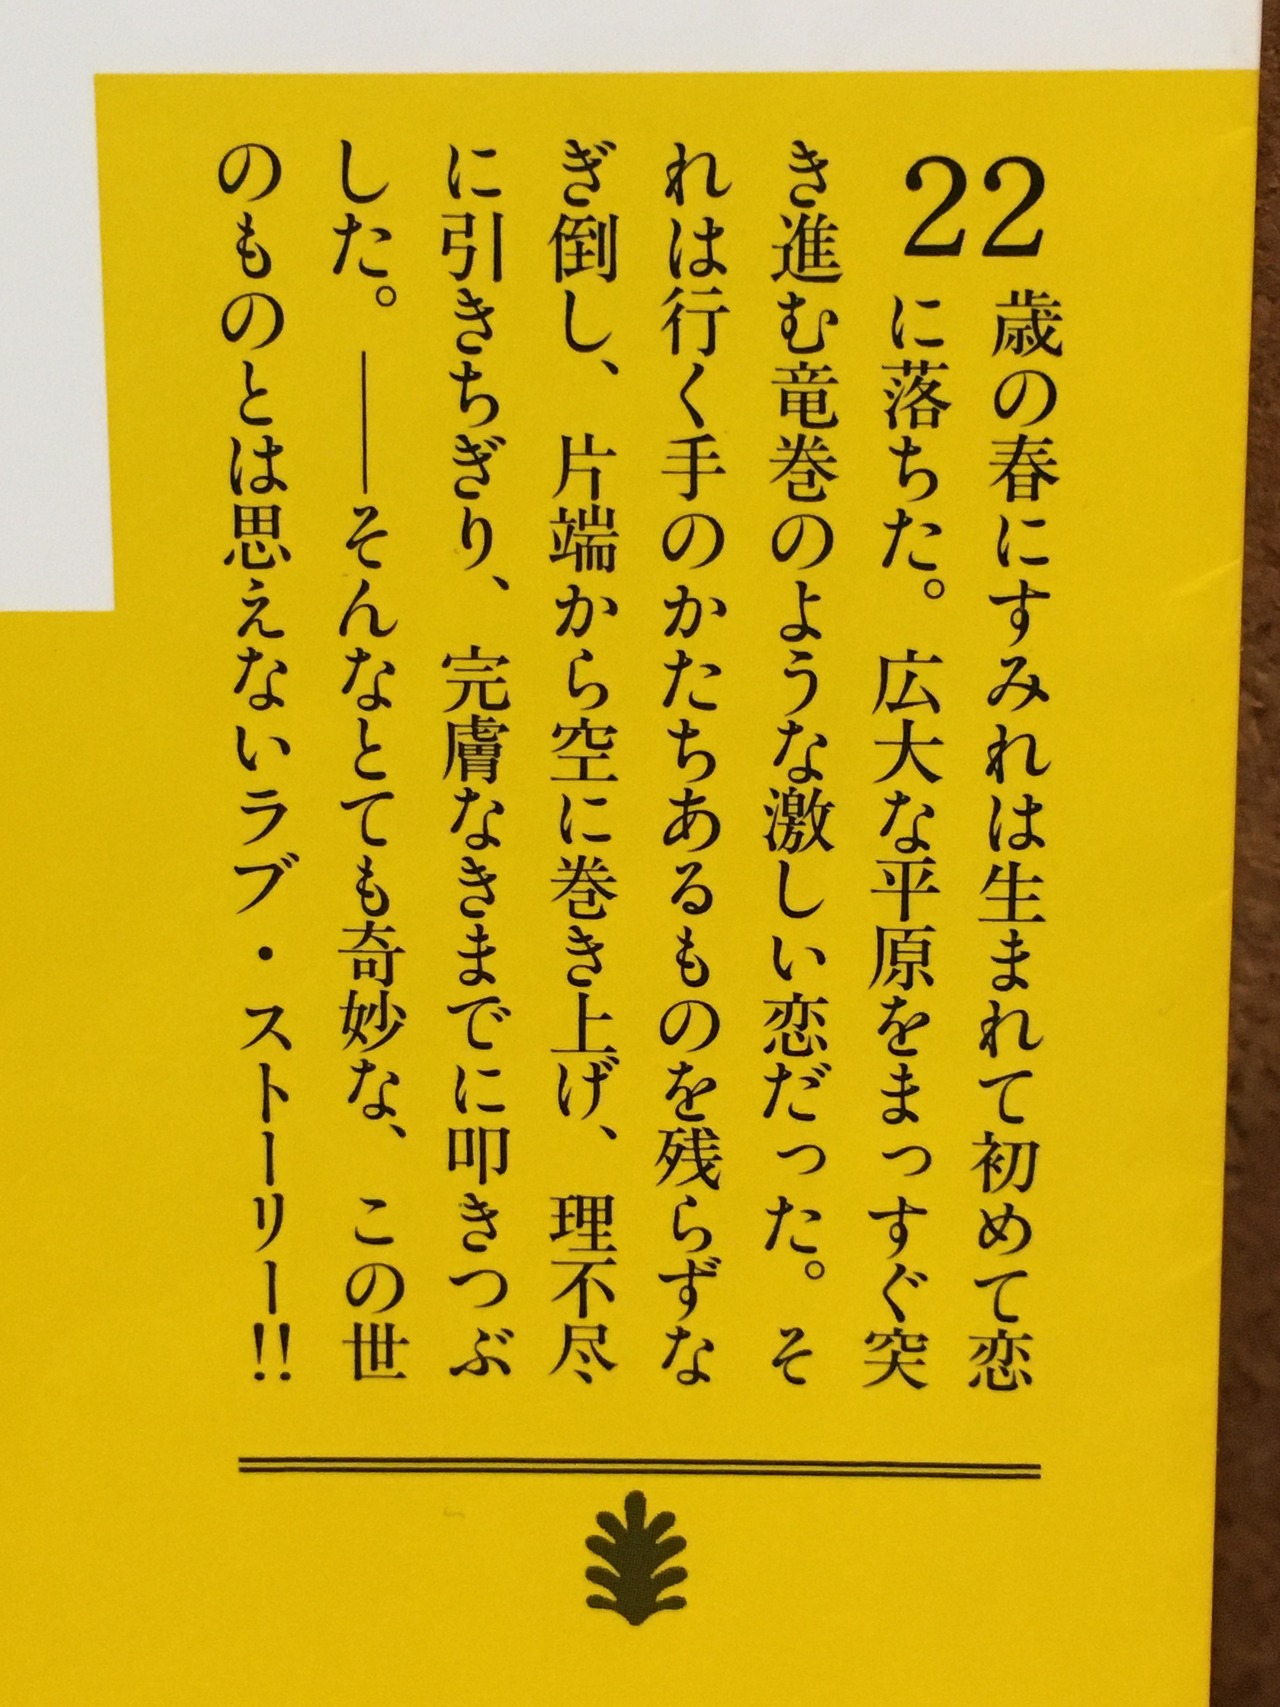 22歳の春にすみれは生まれて初めて恋
に落ちた。広大な平原をまっすぐ突
き進む竜巻のような激しい恋だった。そ
れは行く手のかたちあるものを残らずな
ぎ倒し、片端から空に巻き上げ、理不尽
に引きちぎり、完膚なきまでに叩きつぶ
した。――そんなとても奇妙な、この世
のものとは思えないラブ・ストーリー!!